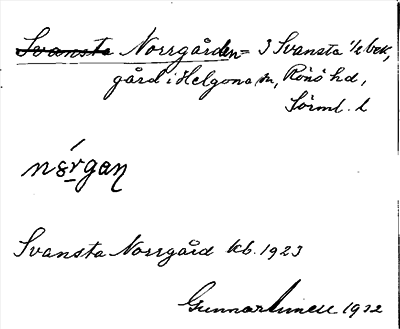 Svansta Norrgården = 3 Svansta 1/2 bek,
gård i Helgona sn, Rönö hd,
Sörml. l
Svansta Norrgård kb. 1923
Gunnar Linell 1932